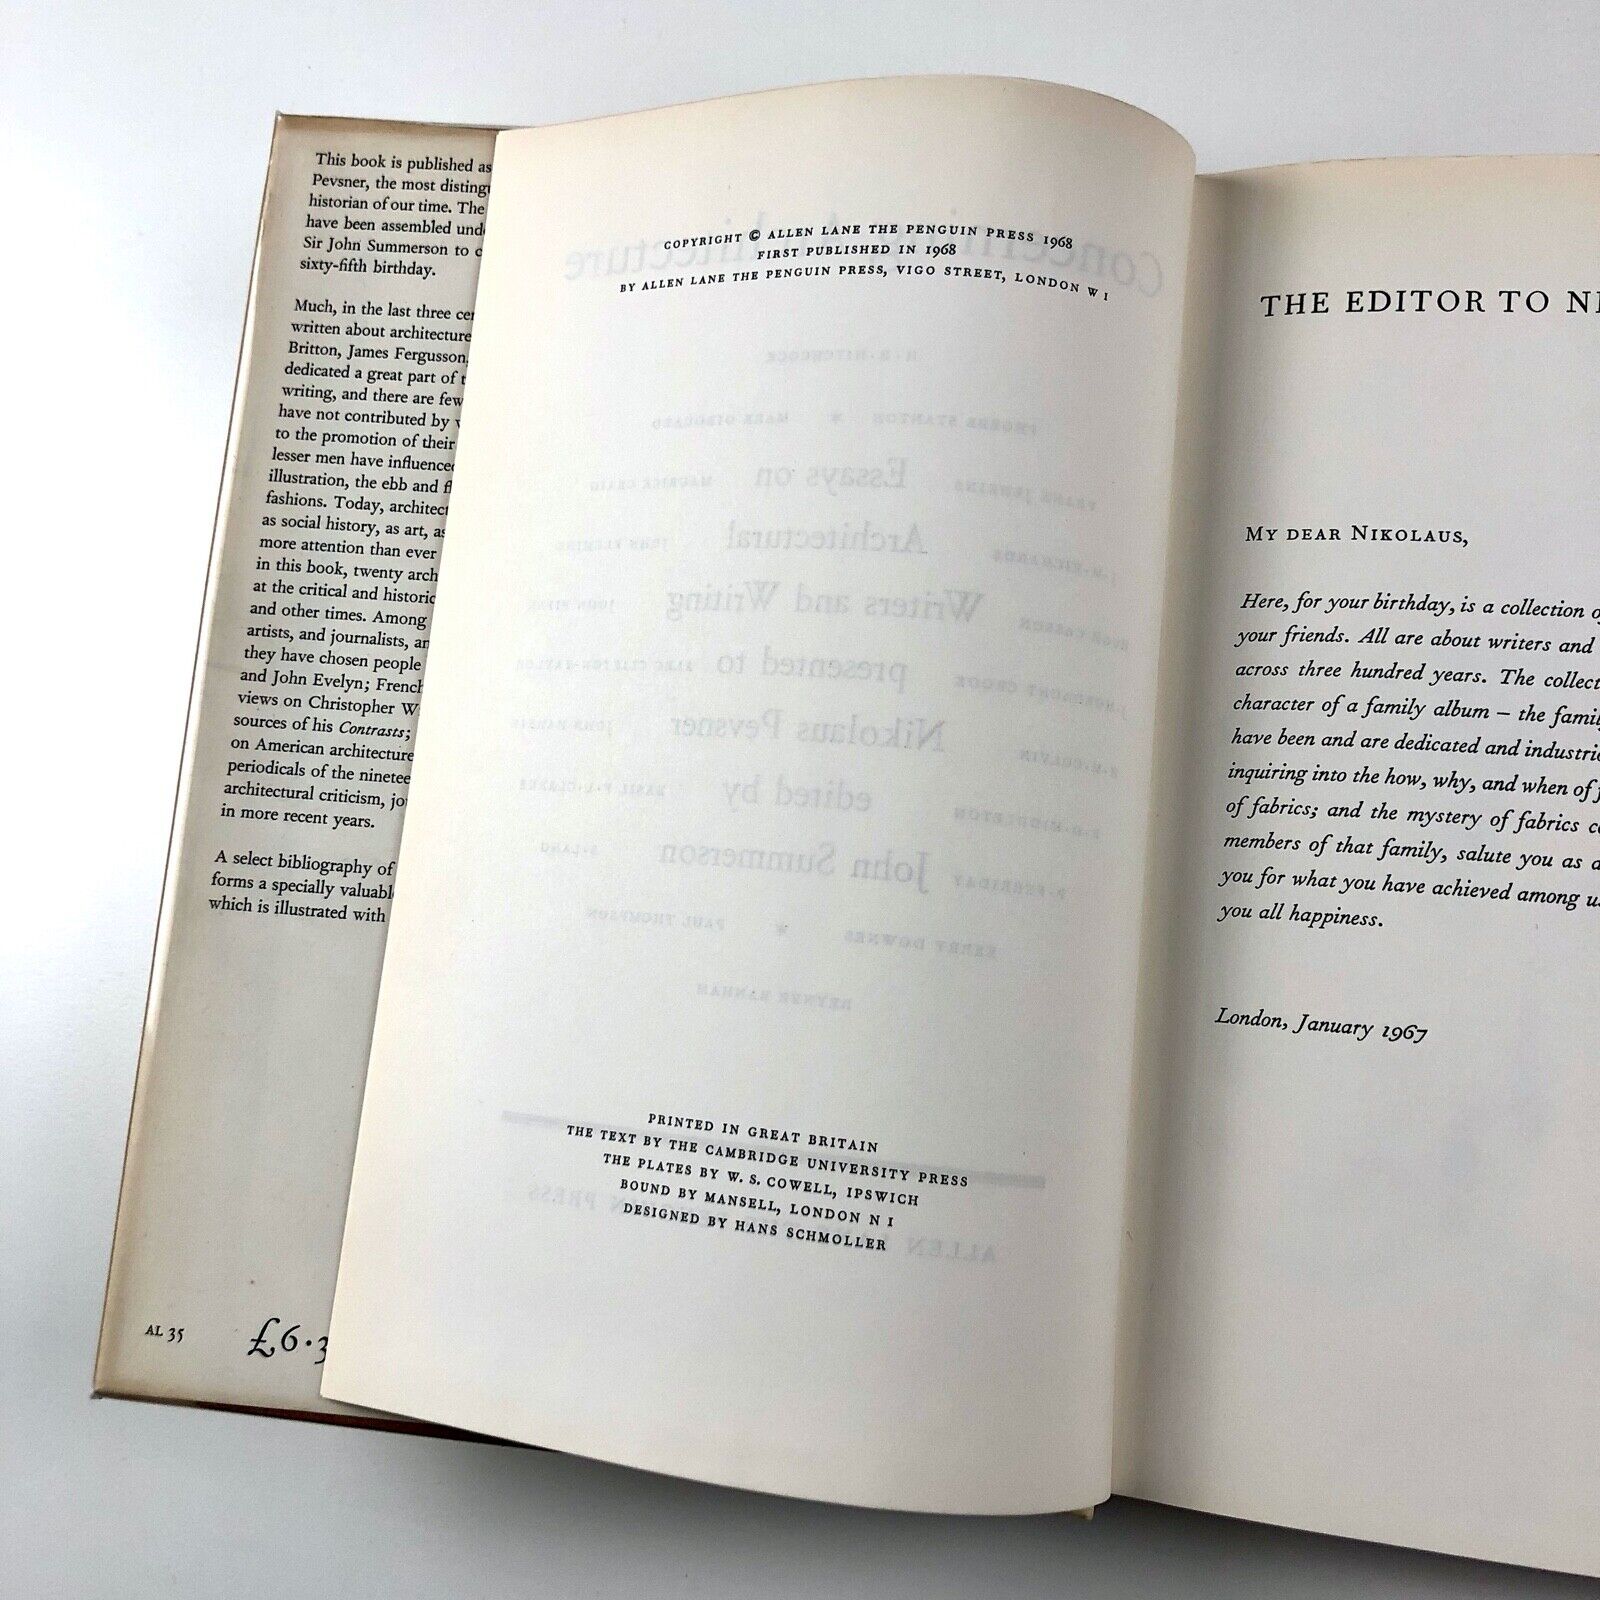 This book is published as
Pevsner, the most
historian of our time. The
have been assembled
Sir John Summerson to
sixty-fifth birthday.
Much, in the last three
written about architecture
Britton, James Fergusson,
dedicated a great part of
writing, and there are few
have not contributed by
to the promotion of their
lesser men have influenced
illustration, the ebb and
fashions. Today,
as social history, as art,
more attention than ever
in this book, twenty
at the critical and
and other times. Among
artists, and journalists,
they have chosen people
and John Evelyn;
views on Christopher
sources of his Contrasts;
on American architecture
periodicals of the
architectural criticism,
in more recent years.
A select bibliography of
forms a specially
which is illustrated with
AL 35
£6·3
COPYRIGHT © ALLEN LANE THE PENGUIN PRESS 1968
FIRST PUBLISHED IN 1968
BY ALLEN LANE THE PENGUIN PRESS, VIGO STREET, LONDON W1
Concerning Architecture
H-R-HITCHCOCK
PHOEBE STANTON * MARK GIROUARD
Essays on
FRANK JENKINS MAURICE CRAIG
Architectural
J.M.RICHARDS JOHN FLEMING
Writers and Writing
HUGH CASSON JOHN PIPER
presented to
J.MORDAUNT CROOK ALEC CLIFTON-TAYLOR
Nikolaus Pevsner
H.M.COLVIN JOHN HARRIS
edited by
R.D.MIDDLETON BASIL F.L.CLARKE
John Summerson
P.FERRIDAY S.LANG
KERRY DOWNES * PAUL THOMPSON
REYNER BANHAM
PRINTED IN GREAT BRITAIN
THE TEXT BY THE CAMBRIDGE UNIVERSITY PRESS
THE PLATES BY W. S. COWELL, IPSWICH
BOUND BY MANSELL, LONDON N1
DESIGNED BY HANS SCHMOLLER
ALLEN PRESS
THE EDITOR TO
MY DEAR NIKOLAUS,
Here, for your birthday, is a collection
your friends. All are about writers and
across three hundred years. The
character of a family album – the
have been and are dedicated and
inquiring into the how, why, and when of
of fabrics; and the mystery of fabrics
members of that family, salute you as
you for what you have achieved among
you all happiness.
London, January 1967